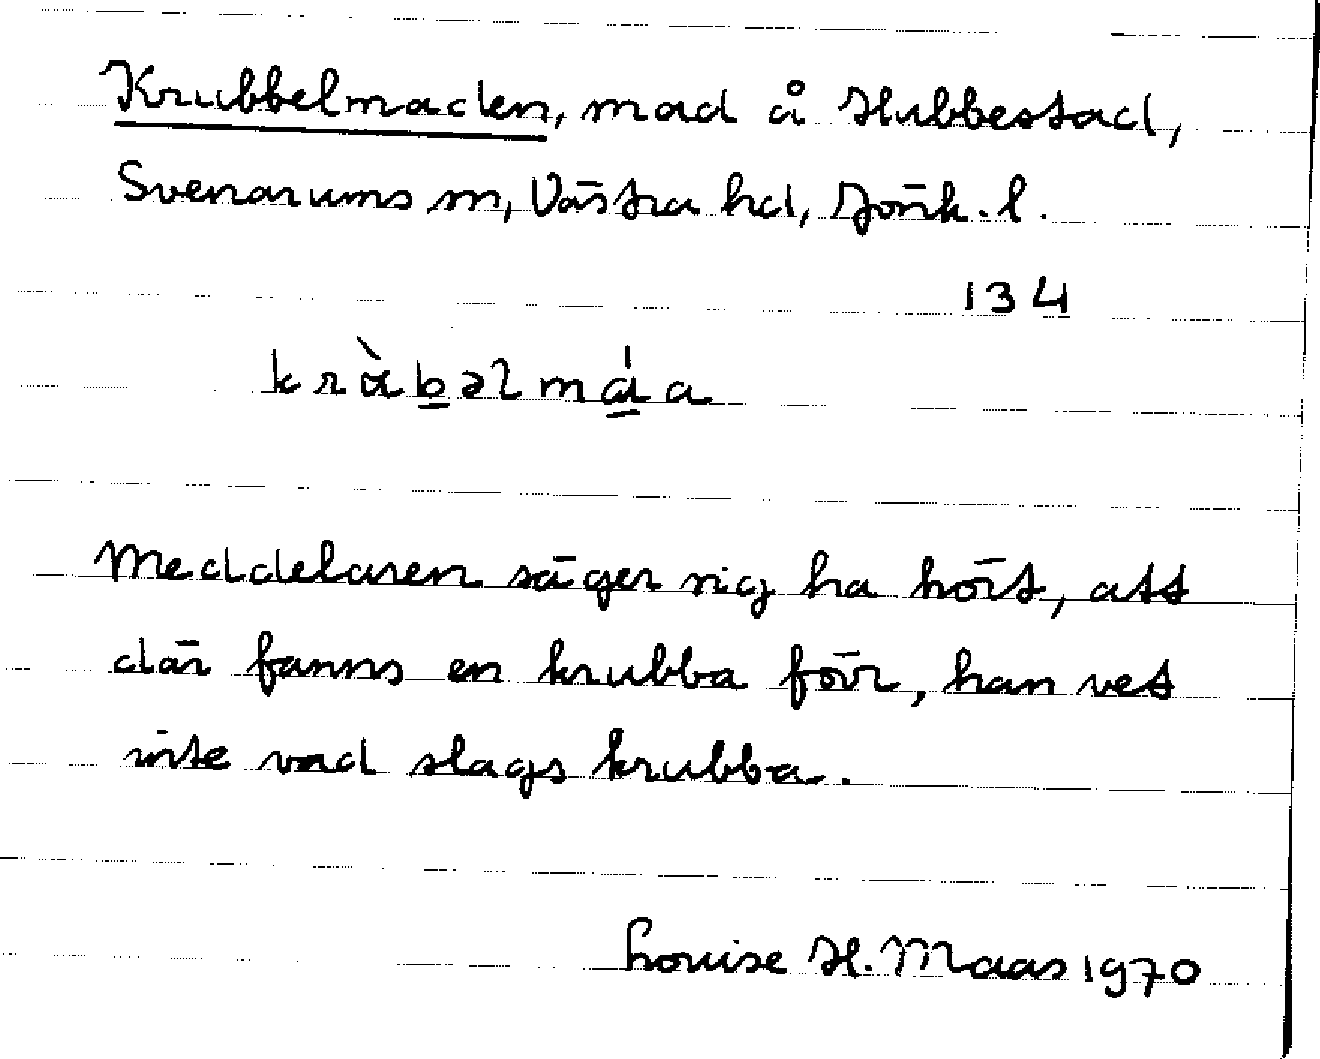 Krubbelmaden, mad å Hubbestad,
Svenarums sn, Västra hd, Jönk. l.
134
kràbəlmáa
Meddelaren säger sig ha hört, att
där fanns en krubba förr, han vet
inte vad slags krubba.
Louise H. Maas 1970